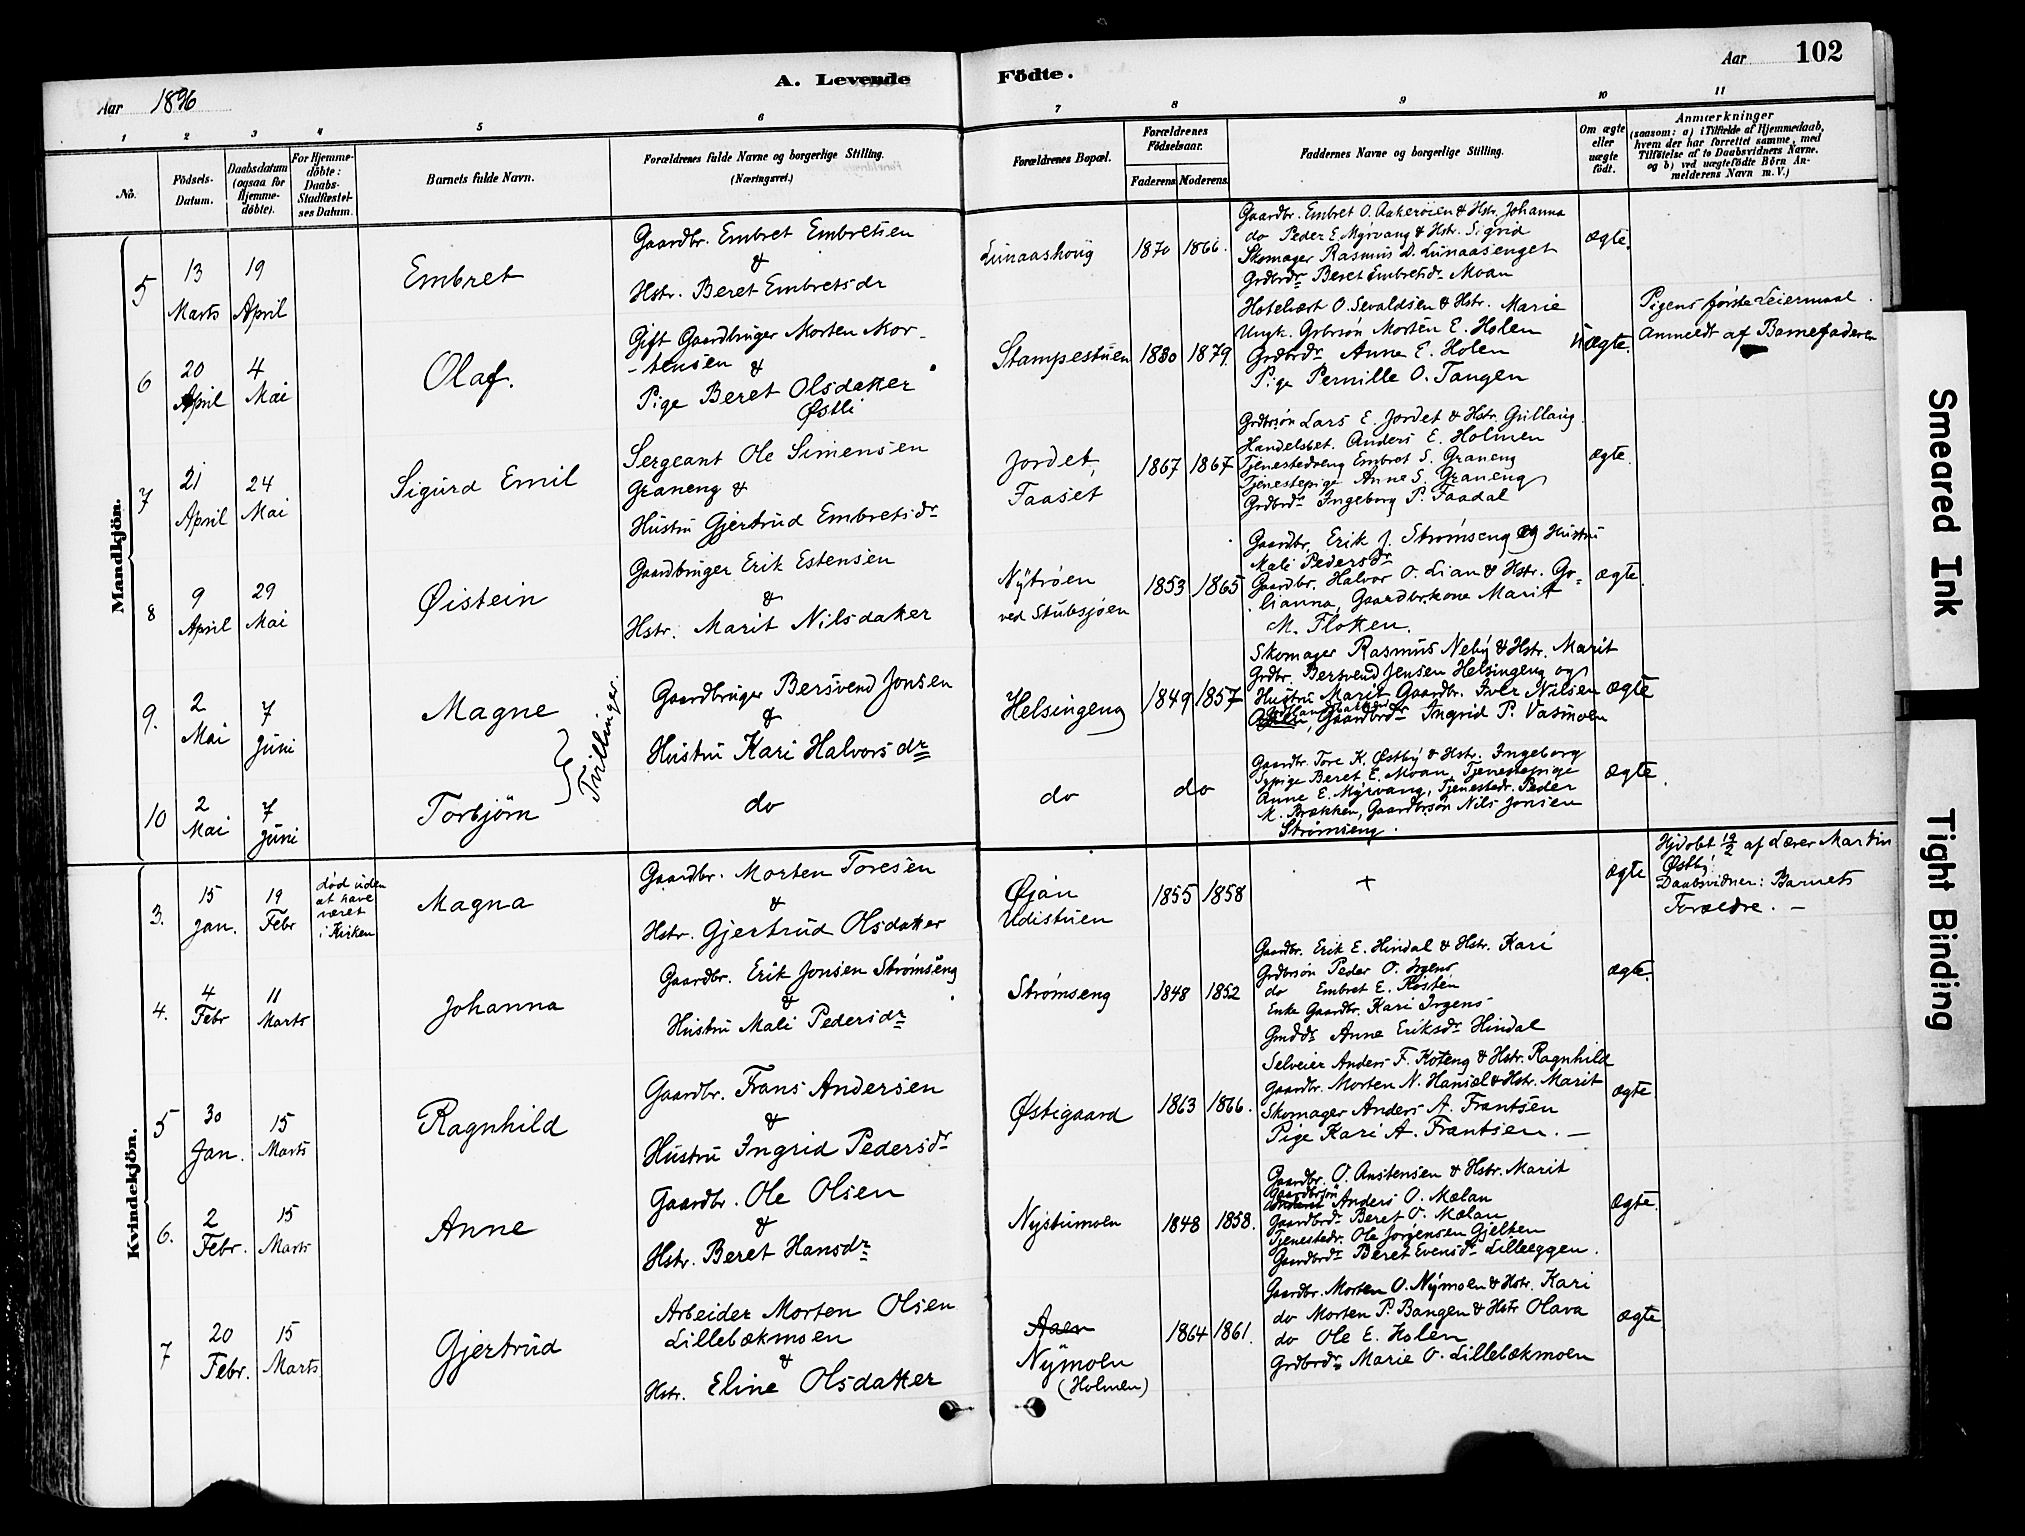 Aar 1896
A. Levende Födte.
Aar 102
1 2 3 4 5 6 7 8 9 10 11
No.
Födsels-
Datum.
Daabsdatum
(ogsaa for
Hjemme-
döbte).
For Hjemme-
döbte:
Daabs-
Stadfæstel-
ses Datum.
Barnets fulde Navn.
Forældrenes fulde Navne og borgerlige Stilling.
(Næringsvei.)
Forældrenes Bopæl.
Forældrenes
Födselsaar.
Faderens. Moderens.
Faddernes Navne og borgerlige Stilling.
Om ægte
eller
uægte
født.
Anmærkninger
(saasom: a) i Tilfælde af Hjemmedaab,
hvem der har forrettet samme, med
Tilføielse af to Daabsvidners Navne.
og b) ved uægtefödte Börn An-
melderens Navn m. V.)
Mandkjön.
5
13
Marts
19
April
Embret
Gaardbr. Embret Embretsen
&
Hstr. Beret Embretsdr
Lunaashoug
1870 1866.
Gaardbr. Embret O. Aakerøien & Hstr. Johanna
do Peder E. Myrvang & Hstr. Sigrid
Skomager Rasmus D. Lunaasenget
Grdbrdr Beret Embretsdr Moan
ægte.
6
20
April
4
Mai
Olaf.
Gift Gaardbruger Morten Mor-
-tensen &
Pige Beret Olsdatter
Østli
Stampestuen
1830 1879.
Hotelvært O. Sevaldsen & Hstr. Marie
Ungk. Grbrsøn Morten E. Holen
Grdbrdr Anne E. Holen
Pige Pernille O. Tangen
uægte.
Pigens første Leiermaal.
Anmeldt af Barnefaderen
7
21
April
24
Mai
Sigurd Emil
Sergeant Ole Simensen
Graneng &
Hustru Gjertrud Embretsdr
Jordet,
Faaset
1867 1867
Grdbrsøn Lars E. Jordet & Hstr. Gullaug.
Handelsbet. Anders E. Holmen
Tjenestedreng Embret S. Graneng
Tjenestepige Anne S. Graneng
Grdbrdr Ingeborg P. Faadal
ægte.
8
9
April
29
Mai
Øistein
Gaardbruger Erik Estensen
&
Hstr. Marit Nilsdatter
Nytrøen
ved Stubsjøen
1853 1865
Gaardbr. Erik J. Strømseng og Hustru
Mali Pedersdr
Gaardbr. Halvor O. Lian & Hstr. Go-
lianna, Gaardbr.kone Marit
M. Floken.
ægte.
9.
2
Mai
7
Juni
Magne
Tvillinger.
Gaardbruger Bersvend Jonsen
&
Hustru Kari Halvorsdr
Helsingeng
1849 1857
Skomager Rasmus Neby & Hstr. Marit
Grdbr. Bersvend Jensen Helsingeng og
Hustru Marit Gaardbr. Iver Nilsen
Gaardbrdr Ingrid P. Vasmoen
ægte
10
2
Mai
7
Juni
Torbjörn
do
do
do
Gaardbr. Tore K. Østby & Hstr. Ingeborg
Sypige Beret E. Moan, Tjenestepige
Anne E. Myrvang, Tjenestedr. Peder
M. Brækken, Gaardbrsøn Nils Jonsen
Strømseng.
ægte.
Kvindekjön.
3.
15
Jan.
19
Febr
død uden
at have
været
i Kirken
Magna
Gaardbr. Morten Toresen
&
Hstr. Gjertrud Olsdatter
Øján
Udistuen
1855 1858
+
ægte
Hjdøbt 19/2 af Lærer Martin
Østby.
Daabsvidner: Barnets
Forældre. —
4.
4
Febr
11
Marts
Johanna
Gaardbr. Erik Jonsen Strømseng
&
Hustru Mali Pedersdr
Strømseng
1848 1852
Gaardbr. Erik E. Hindal & Hstr. Kari
Grdbrsøn Peder O. Irgens
do Embret E. Røsten
Enke Gaardbr. Kari Irgens
Gmddr Anne Eriksdr Hindal
ægte.
5
30
Jan.
15
Marts
Ragnhild
Gaardbr. Frans Andersen
&
Hustru Ingrid Pedersdr
Østigaard
1863 1866.
Selveier Anders F. Koteng & Hstr. Ragnhild
Gaardbr. Morten N. Hansæl & Hstr. Marit
Skomager Anders A. Frantsen
Pige Kari A. Frantsen. —
ægte
6.
2
Febr.
15
Marts
Anne
Gaardbr. Ole Olsen
&
Hstr. Beret Hansdr
Nystumoen
1848 1858.
Gaardbr. O. Anstensen & Hstr. Marit
Gaardbrsøn
Anders O. Mælan
Gaardbrdr Beret O. Mælan
Tjenestedr. Ole Jørgensen Gjelten
Gaardbrdr Beret Evensdr Lilleeggen.
ægte.
7
20
Febr.
15
Marts
Gjertrud
Arbeider Morten Olsen
Lillebækmoen
&
Hstr. Eline Olsdatter
Aaen
Nymoen
(Holmen)
1864 1861.
Gaardbr. Morten O. Nymoen & Hstr. Kari
do Morten P. Bangen & Hstr Olava
do Ole E. Holen
Grdbrdr Marie O. Lillebækmoen
ægte
Smeared Ink
Tight Binding